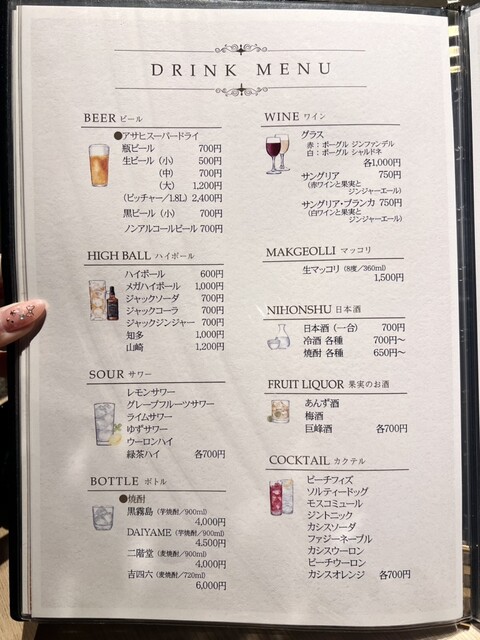 DRINK MENU
BEER ビール
●アサヒスーパードライ
瓶ビール 700円
生ビール（小） 500円
（中） 700円
（大） 1,200円
（ピッチャー／1.8L） 2,400円
黒ビール（小） 700円
ノンアルコールビール 700円
HIGH BALL ハイボール
ハイボール 600円
メガハイボール 1,000円
ジャックソーダ 700円
ジャックコーラ 700円
ジャックジンジャー 700円
知多 1,000円
山崎 1,200円
SOUR サワー
レモンサワー
グレープフルーツサワー
ライムサワー
ゆずサワー
ウーロンハイ
緑茶ハイ 各700円
BOTTLE ボトル
●焼酎
黒霧島（芋焼酎／900ml）
4,000円
DAIYAME（芋焼酎／900ml）
4,500円
二階堂（麦焼酎／900ml）
4,000円
吉四六（麦焼酎／720ml）
6,000円
WINE ワイン
グラス
赤：ボーグル ジンファンデル
白：ボーグル シャルドネ
各1,000円
サングリア 750円
（赤ワインと果実と
ジンジャーエール）
サングリア・ブランカ 750円
（白ワインと果実と
ジンジャーエール）
MAKGEOLLI マッコリ
生マッコリ（8度／360ml）
1,500円
NIHONSHU 日本酒
日本酒（一合） 700円
冷酒 各種 700円〜
焼酎 各種 650円〜
FRUIT LIQUOR 果実のお酒
あんず酒
梅酒
巨峰酒 各700円
COCKTAIL カクテル
ピーチフィズ
ソルティードッグ
モスコミュール
ジントニック
カシスソーダ
ファジーネーブル
カシスウーロン
ピーチウーロン
カシスオレンジ 各700円